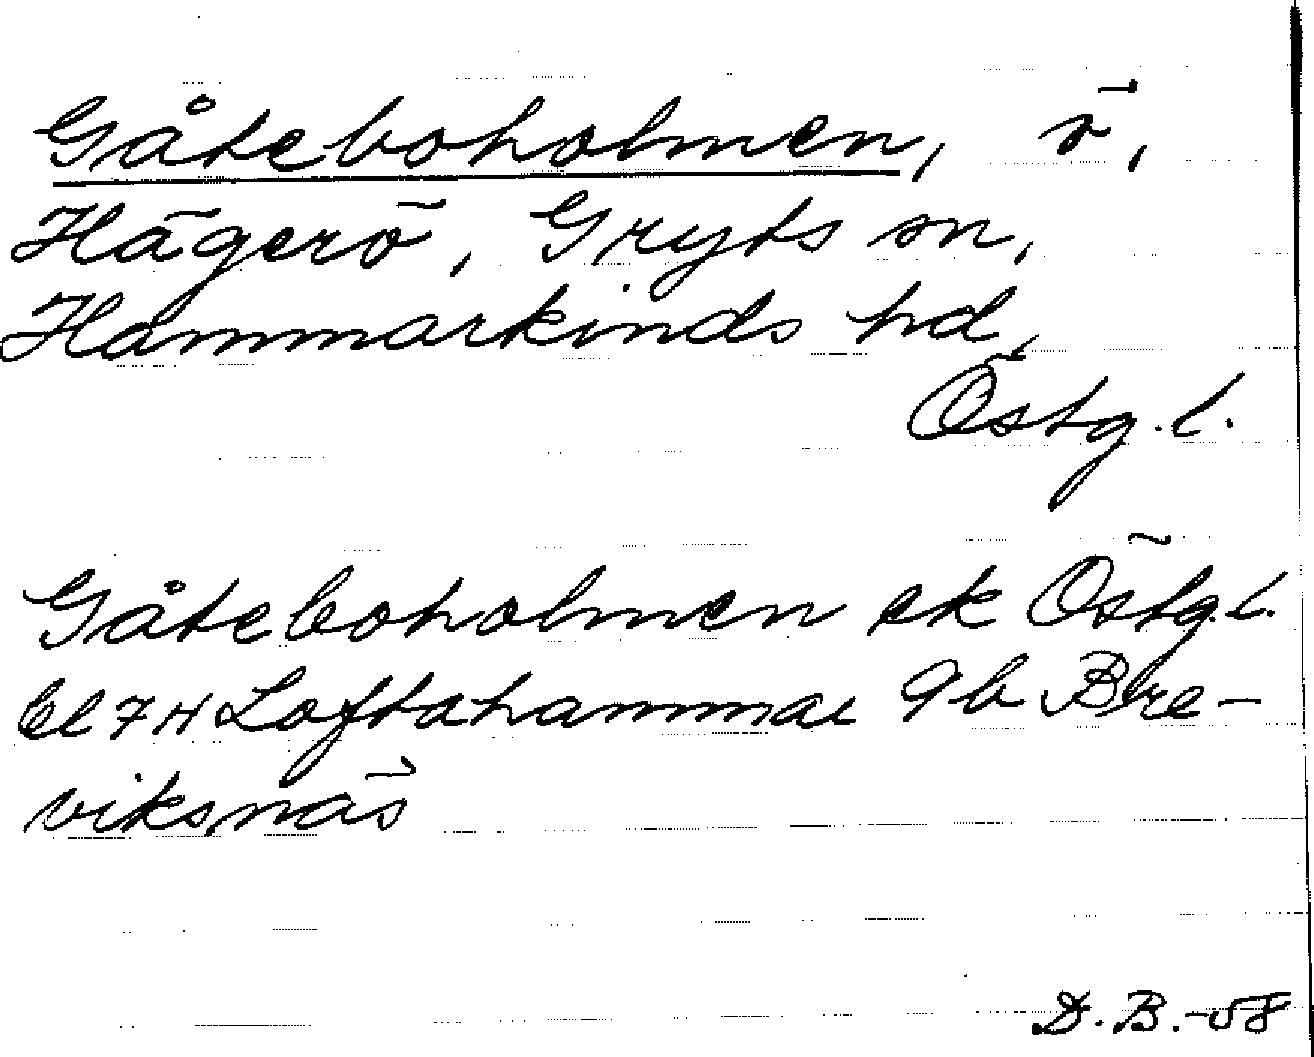 Gåteboholmen, ö,
Hägerö, Gryts sn,
Hammarkinds hd,
Östg. l.
Gåteboholmen ek Östg. l.
bl 7H Loftahammar 9b Bre-
viksnäs
D.B.-58